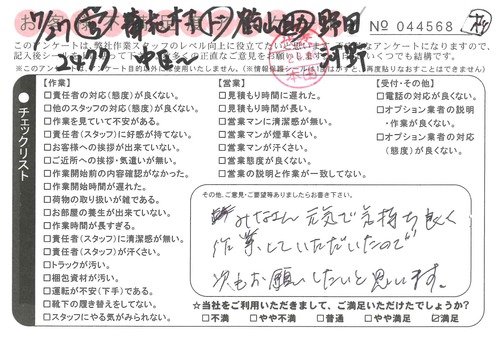 No 044568
このアンケートは、弊社作業スタッフのレベル向上に役立てたいと思い
チェックリスト
【作業】
□責任者の対応(態度)が良くない。
□他のスタッフの対応(態度)が良くない。
□作業を見ていて不安がある。
□責任者(スタッフ)に好感が持てない。
□お客様への挨拶が出来ていない。
□ご近所への挨拶・気遣いが無い。
□作業開始前の内容確認がなかった。
□作業開始時間が遅れた。
□荷物の取り扱いが雑である。
□お部屋の養生が出来ていない。
□作業時間が長すぎる。
□責任者(スタッフ)に清潔感が無い。
□責任者(スタッフ)が汗くさい。
□トラックが汚い。
□梱包資材が汚い。
□運転が不安(下手)である。
□靴下の履き替えをしてない。
□スタッフにやる気がみられない。
【営業】
□見積もり時間に遅れた。
□見積もり時間が長い。
□営業マンに清潔感が無い。
□営業マンが煙草くさい。
□営業マンが汗くさい。
□営業態度が良くない。
□営業の説明と作業が一致してない。
【受付・その他】
□電話の対応が良くない。
□オプション業者の説明
・作業が良くない。
□オプション業者の対応
(態度)が良くない。
その他、ご意見・ご要望等ありましたらお書き下さい。
みなさん元気で気持ち良く
作業していただいたので
次もお願いしたいと思います。
☆当社をご利用いただきまして、ご満足いただけたでしょうか?
□不満 □やや不満 □普通 □やや満足 ☑満足